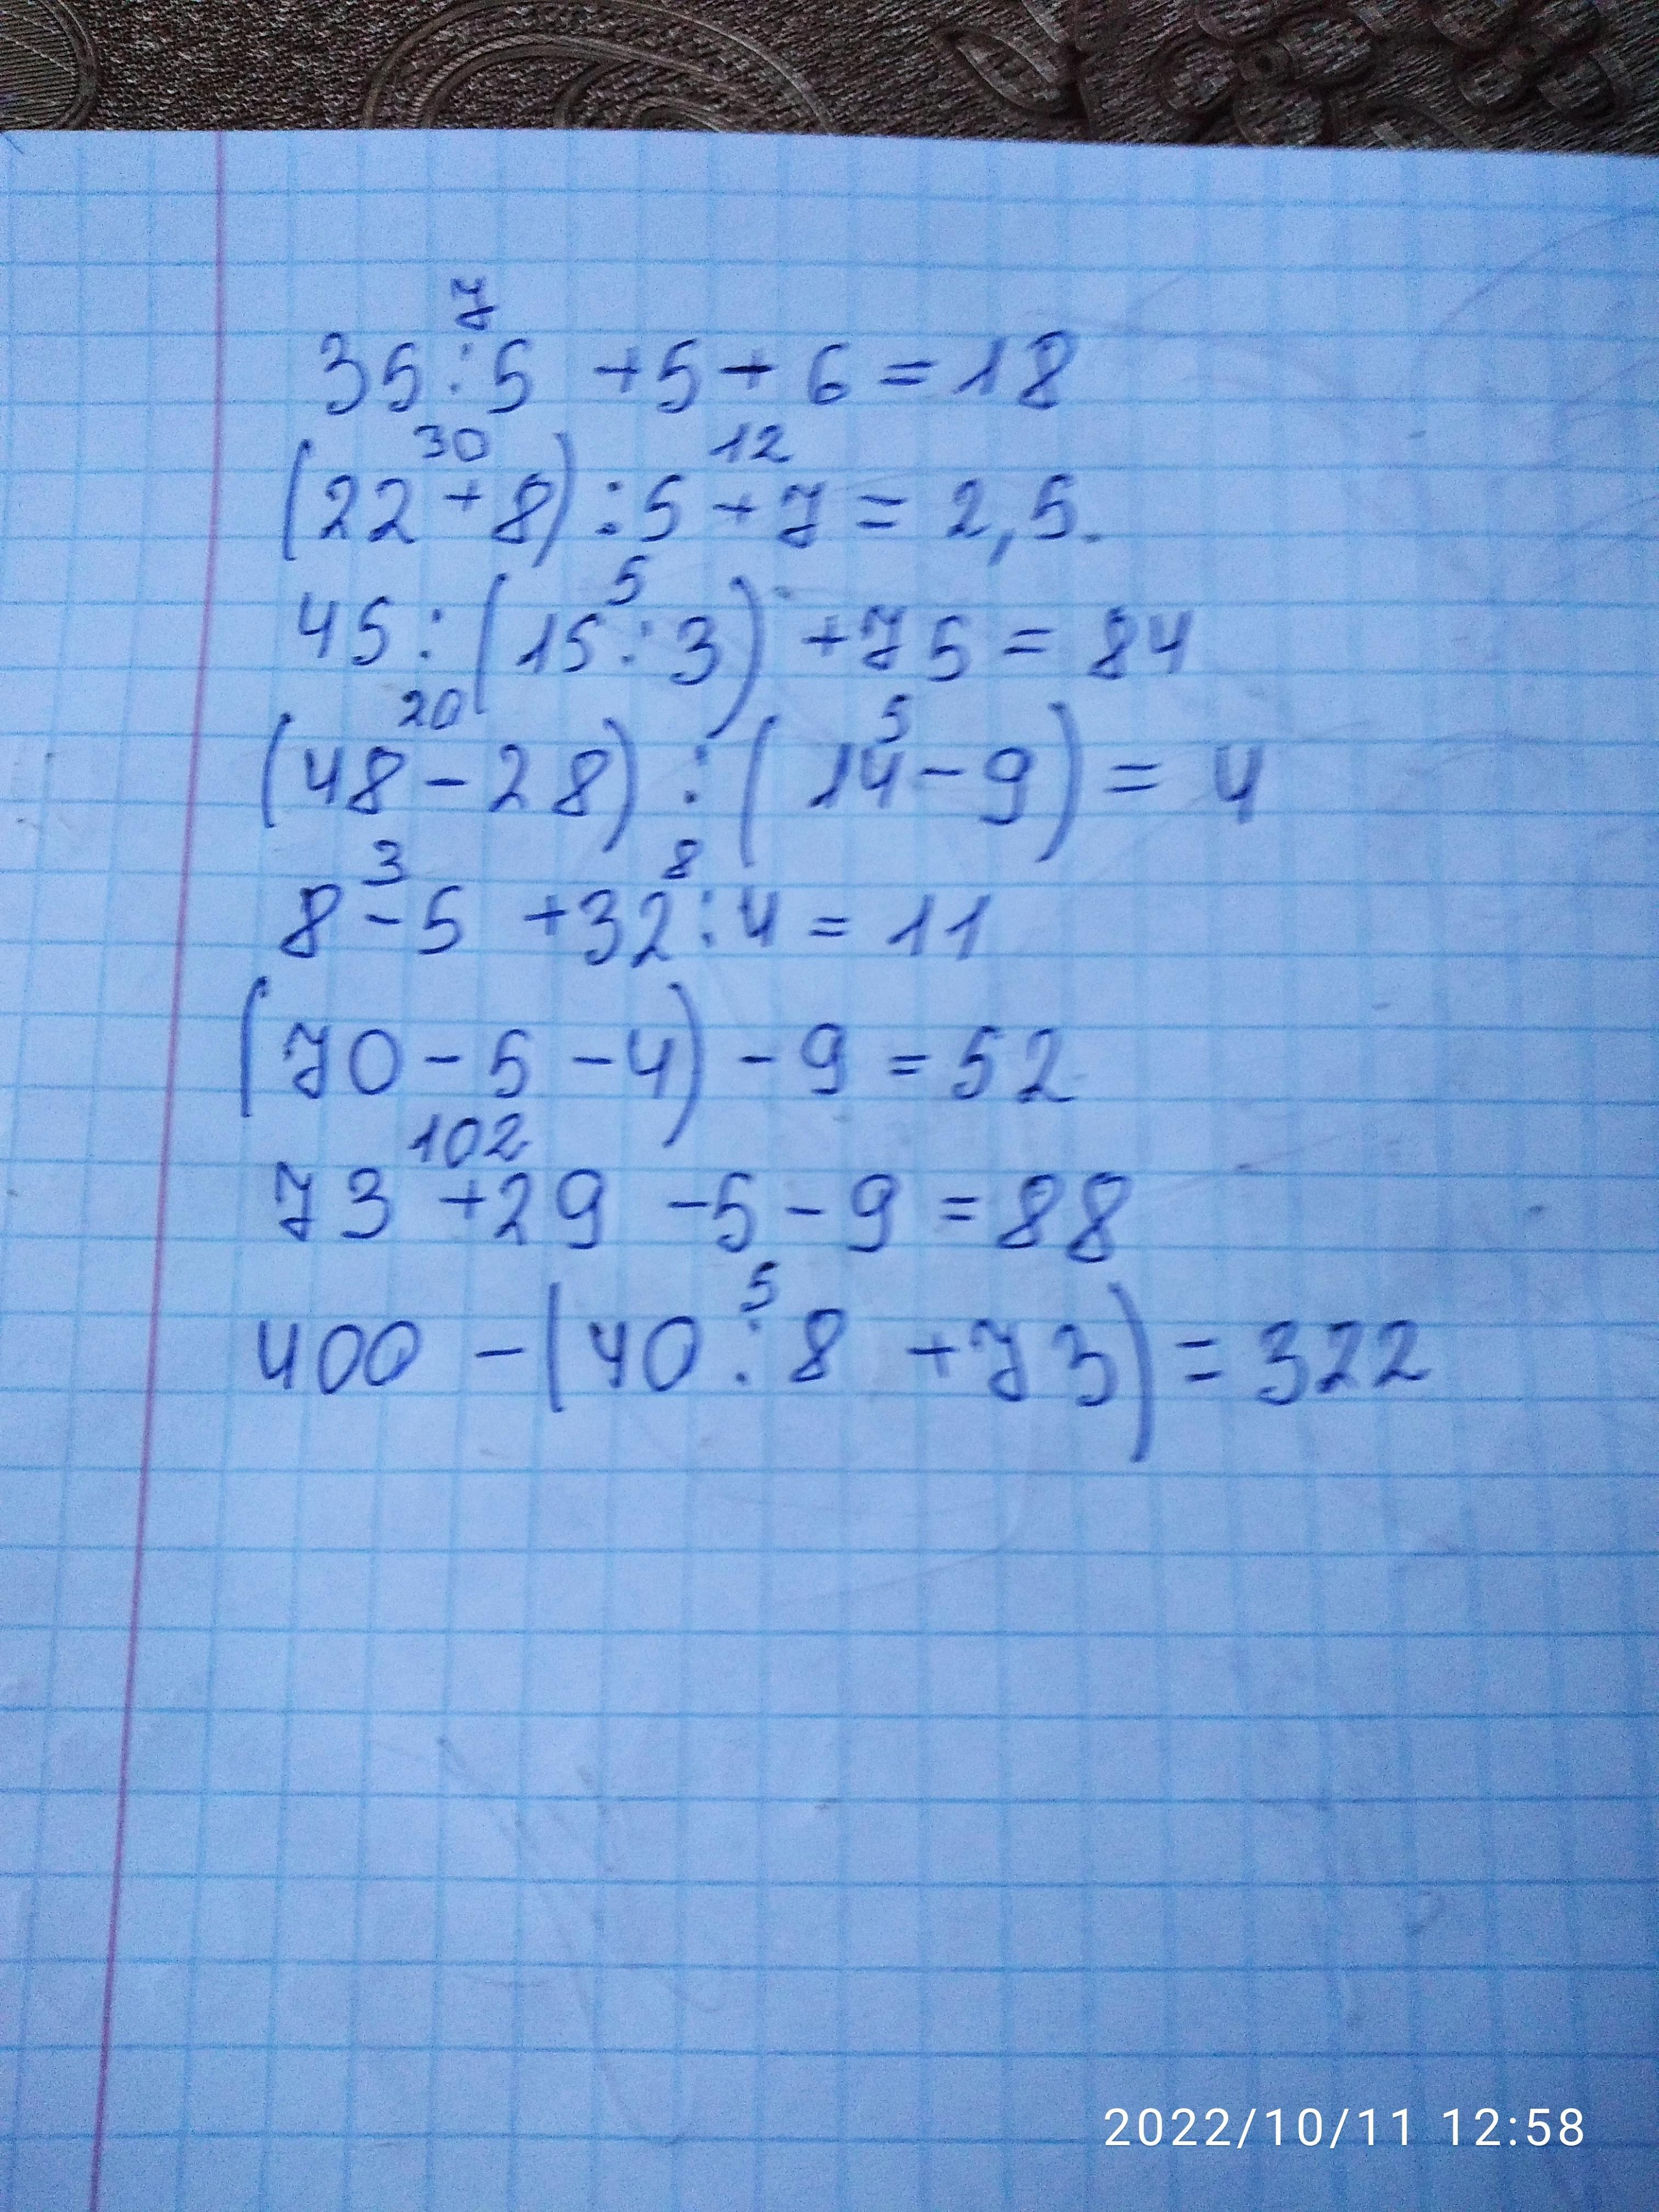 7
35:5 +5+6=18
30 12
(22+8):5+7=2,5.
5
45:(15:3)+75=84
20 5
(48-28):(14-9)=4
3 8
8-5 +32:4=11
(70-5-4)-9=52
102
73+29-5-9=88
5
400-(40:8+73)=322
2022/10/11 12:58